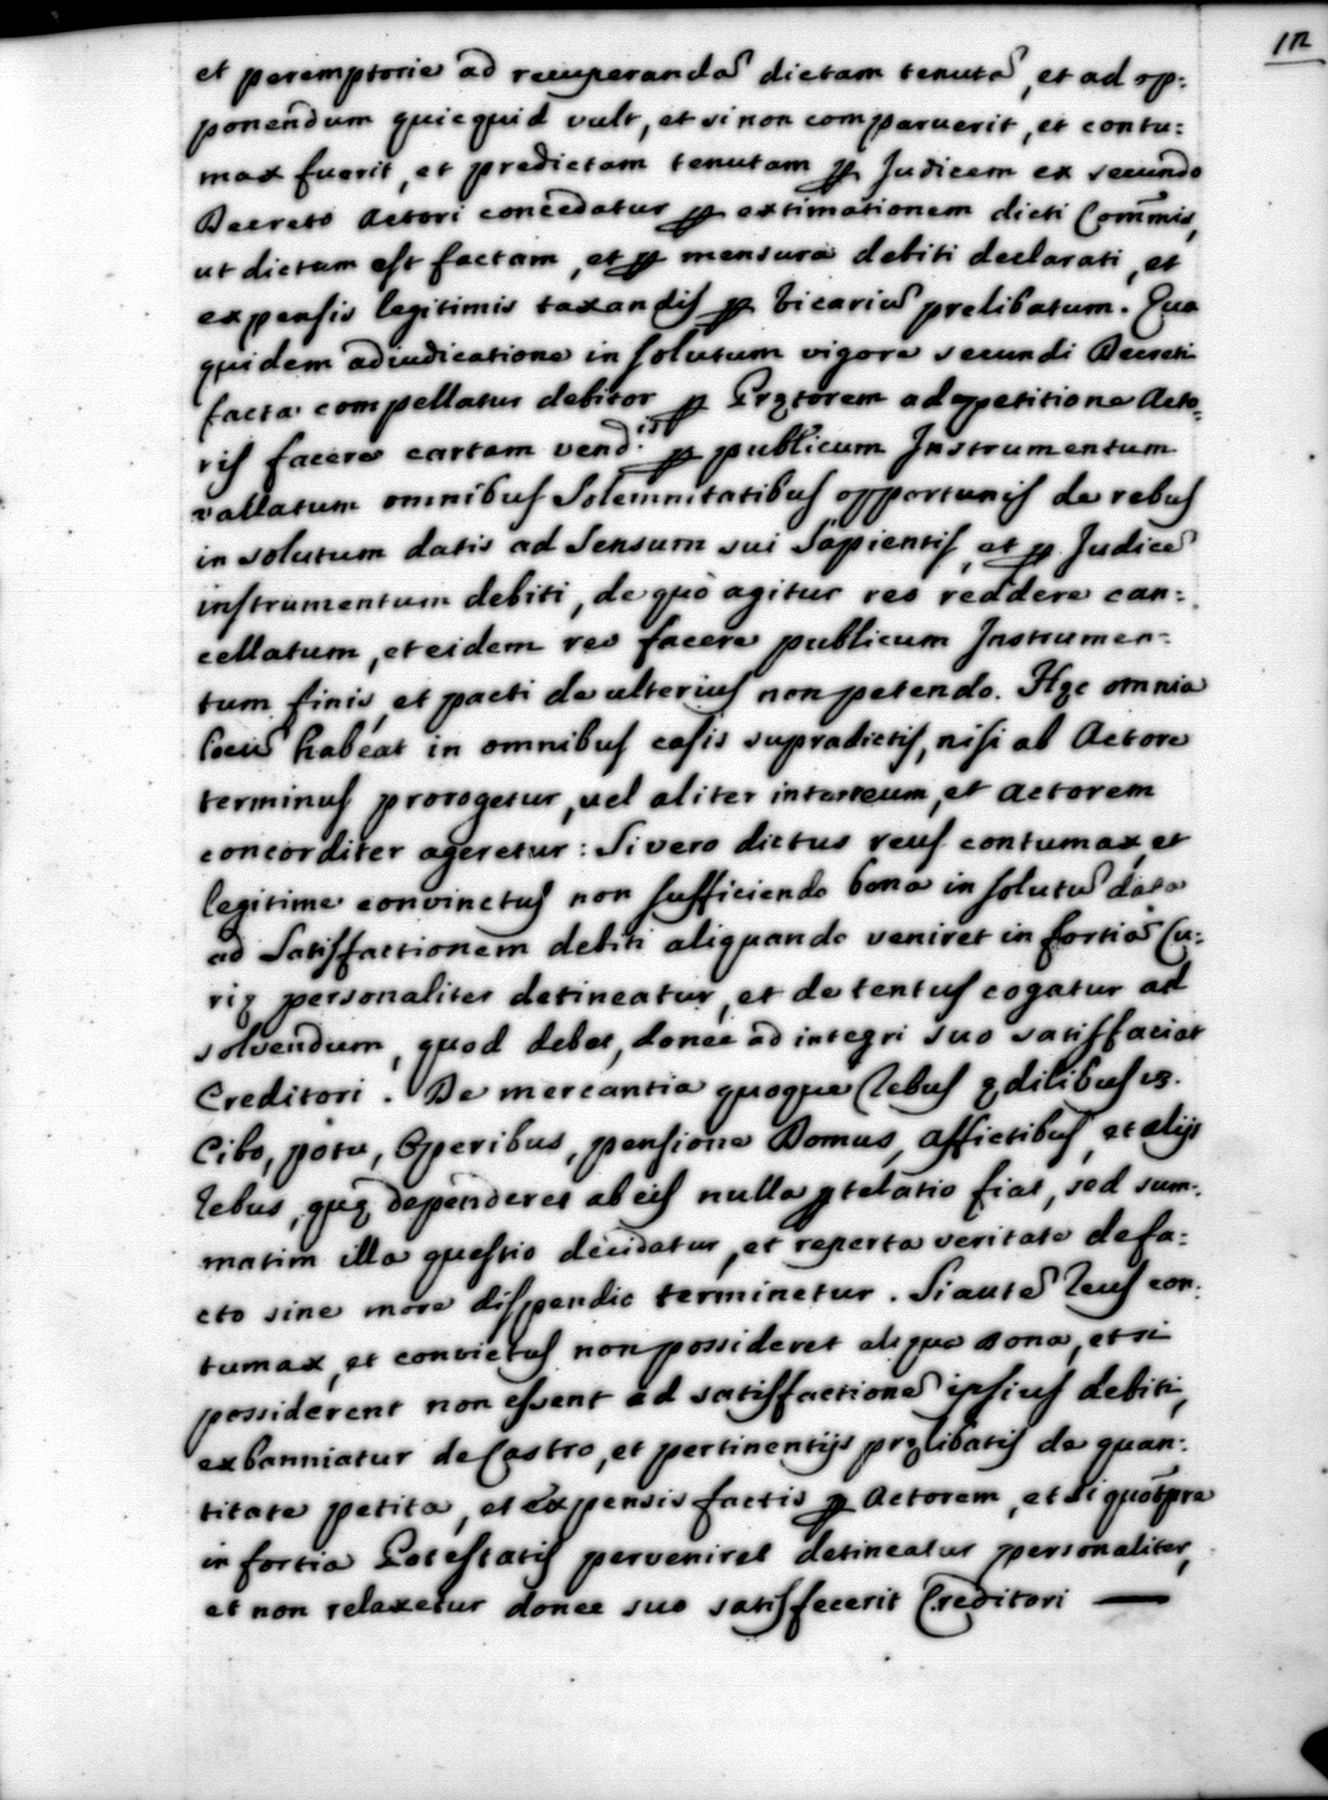 et peremptorie ad recuperandã dictam tenutã, et ad op:
ponendum quicquid vult, et si non comparuerit, et contu:
max fuerit, et predictam tenutam ꝑ Judicem ex secundo
Decreto Actori concedatur ꝑ extimationem dicti Com̃is,
ut dictum est factam, et ꝑ mensura debiti declarati, et
expensis legitimis taxandis ꝑ Vicariũ prelibatum. Qua
quidem adiudicatione in solutum vigore secundi Decreti
facta compellatur debitor ꝑ Prętorem ad petitione Acto:
ris facere cartam vend.is ꝑ publicum Instrumentum
vallatum omnibus Solemnitatibus opportunis de rebus
in solutum datis ad Sensum sui Sapientis, et ꝑ Judicẽ
instrumentum debiti, de quo agitur reo reddere can:
cellatum, et eidem reo facere publicum Instrumen:
tum finis, et pacti de ulterius non petendo. Hęc omnia
locũ habeat in omnibus casis supradictis, nisi ab Actore
terminus prorogetur, vel aliter inter reum, et actorem
concorditer ageretur: Si vero dictus reus contumax, et
legitime convinctus non sufficiendo bona in solutũ data
ad Satisfactionem debiti aliquando veniret in fortiã Cu:
rię personaliter detineatur, et detentus cogatur ad
solvendum, quod debet, donec ad integri suo satisfaciat
Creditori. De mercantia quoque Rebus ędilibus
Cibo, potu, Operibus, pensione Domus, affictibus, et alijs
Rebus, quę dependeret ab eis nulla fiat, sed sum:
matim illa questio decidatur, et reperta veritate de fa:
cto sine more dispendio terminetur. Si autẽ Reus con:
tumax, et convictus non possideret aliqua bona, et si
possiderent non essent ad satisfactionẽ ipsius debiti,
exbanniatur de Castro, et pertinentijs pręlibatis de quan:
titate petita, et expensis factis ꝑ Actorem, et si
in fortia Potestatis perveniret detineatur personaliter,
et non relaxetur donec suo satisfecerit Creditori —